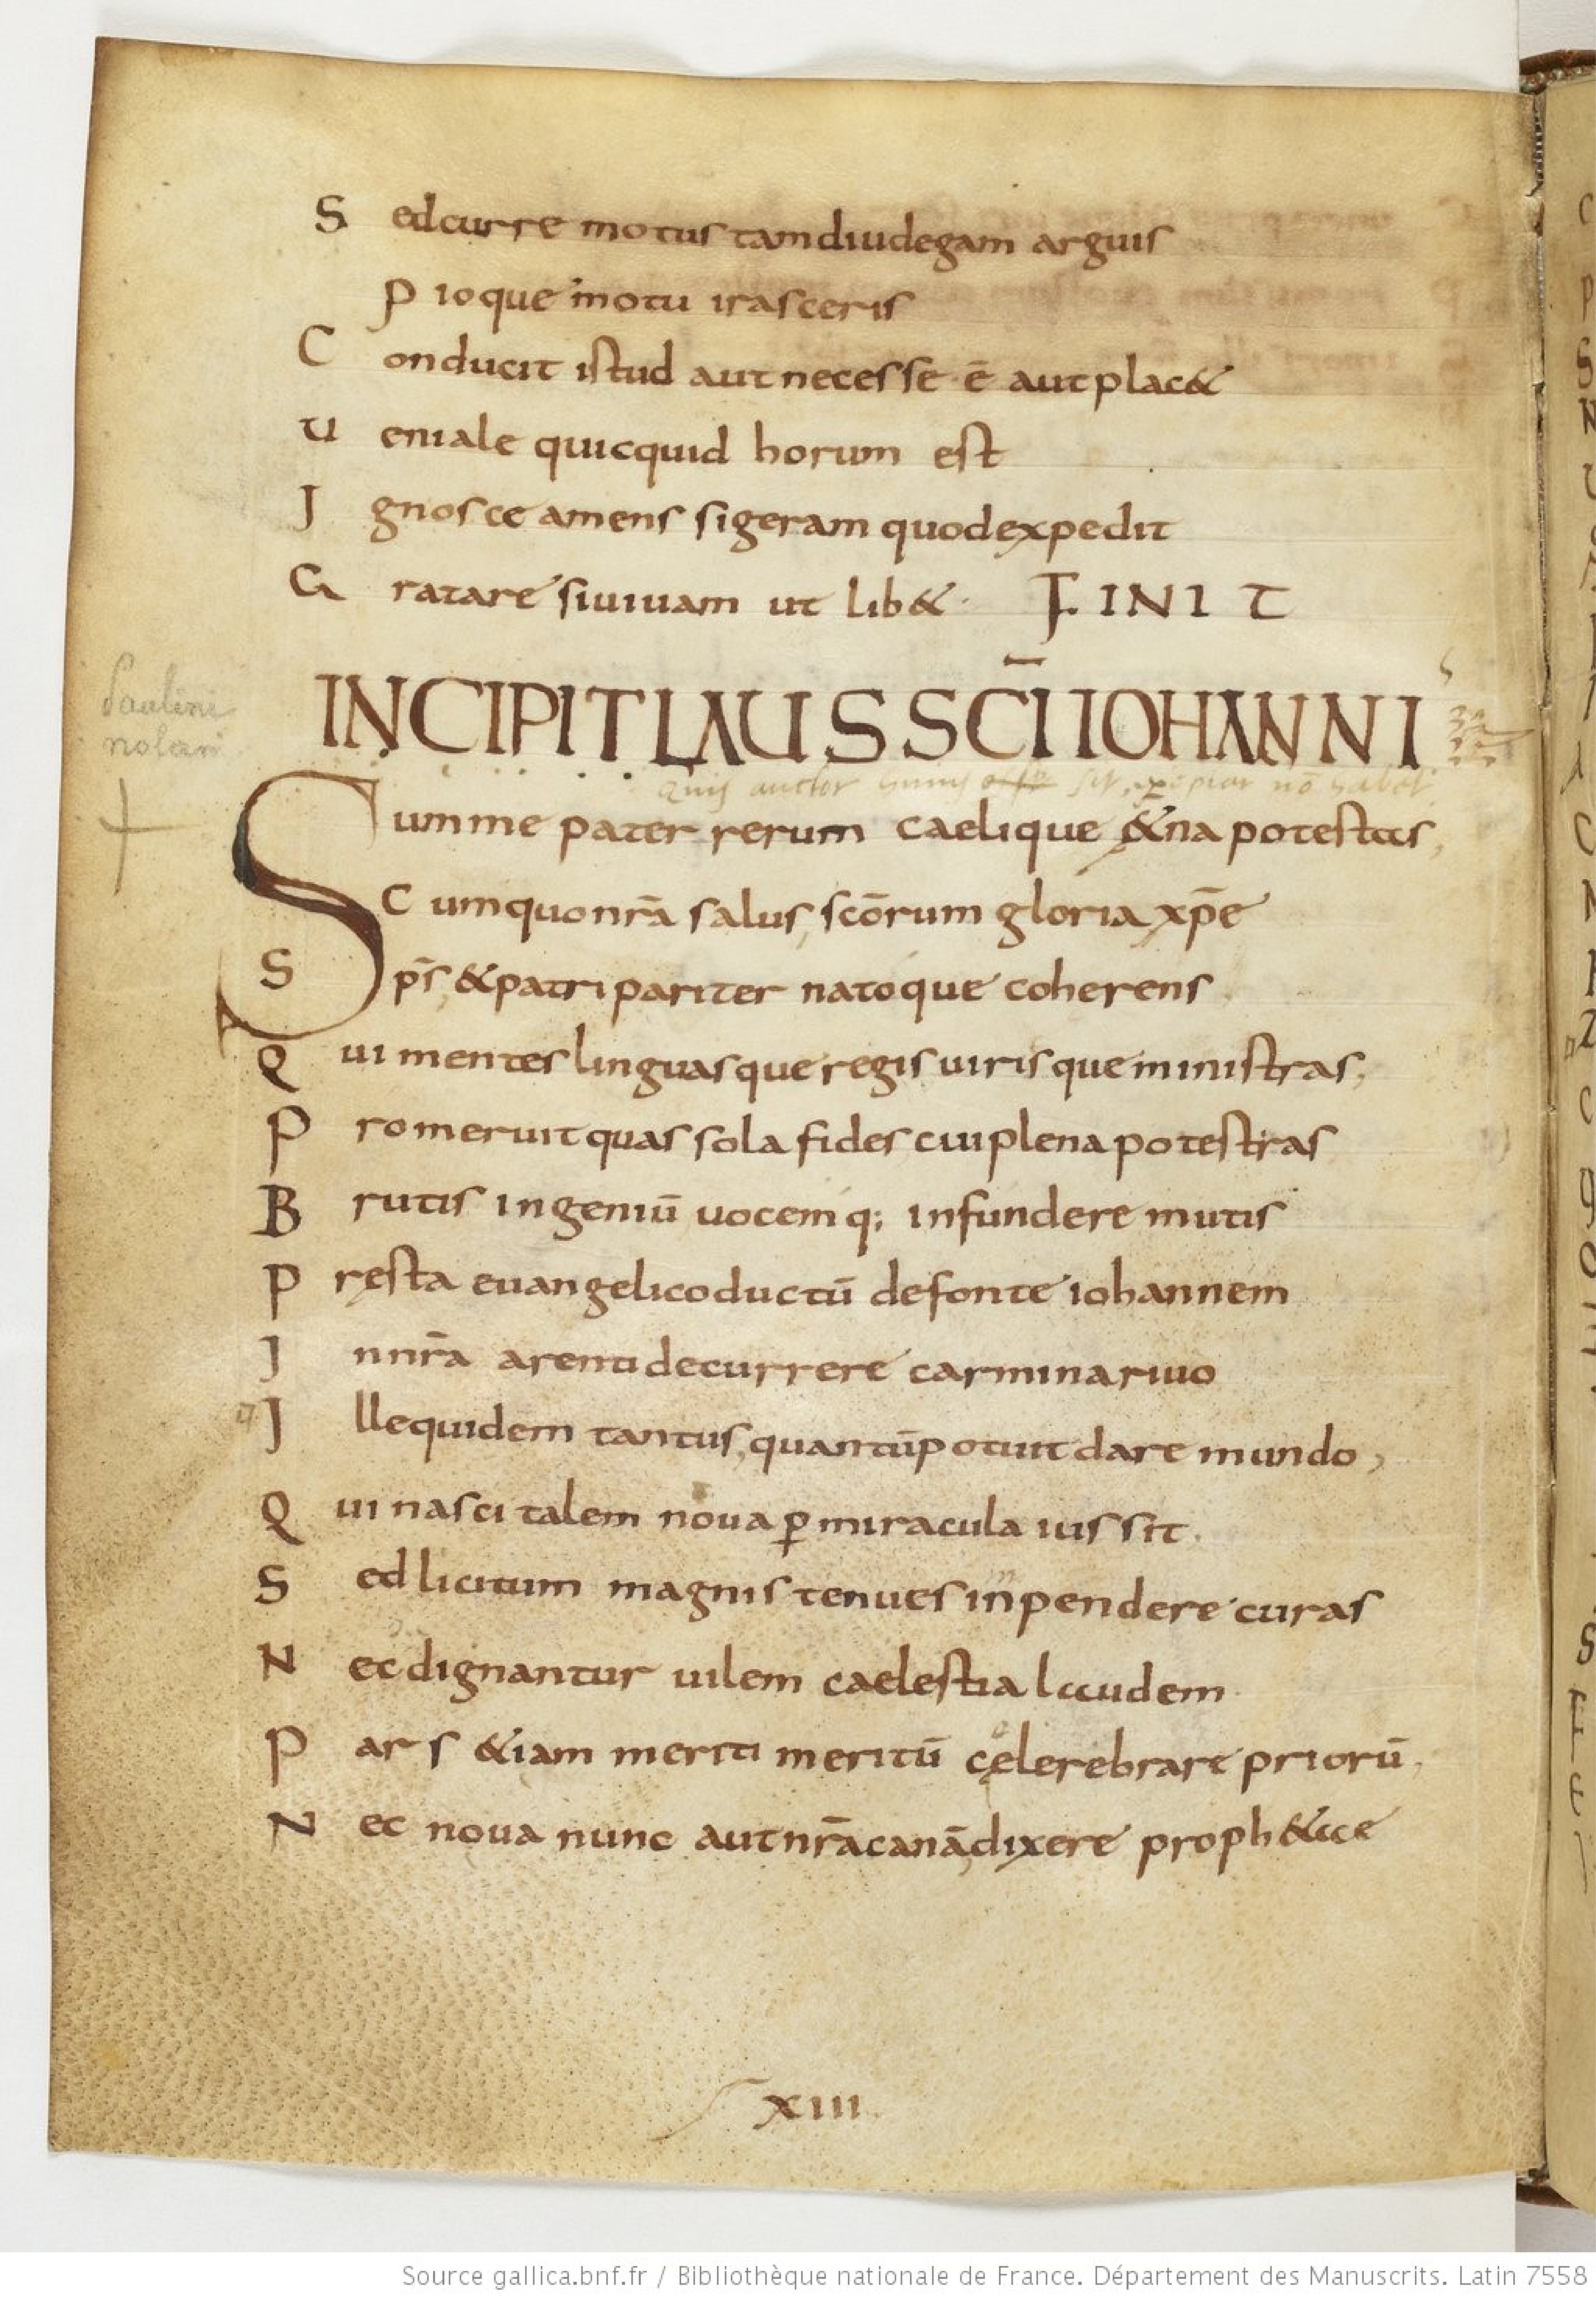 S edcurre motus tamdiudegam arguis
P ioque motu irasceris
C onducit istud aut necesse ē aut plac&
U eniale quicquid horum est
I gnosce amens si geram quod expedit
G ratare si uiuam ut lib& FINIT
Paulini
nolani
INCIPIT LAUS SCĪ IOHANNI
Quis auctor huius sit, nō habet
Summe pater rerum caelique &na potestas,
C um quo nr̄a salus, scōrum gloria xp̄e
S ps̄ & patri pariter natoque coherens
Q ui mentes linguasque regis uirisque ministras,
P romeruit quas sola fides cui plena potestas
B rutis ingeniū uocemq; infundere mutis
P ręsta euangelico ductū de fonte iohannem
I n nr̄a arenti decurrere carmina riuo
I lle quidem tantus, quantū potuit dare mundo,
Q ui nasci talem noua ꝑ miracula iussit.
S ed licitum magnis tenues inpendere curas
N ec dignantur uilem caelestia laudem
P ars &iam meriti meritū cęlerebrare priorū
N ec noua nunc aut nr̄a canā, dixere proph&ae
XIII
Source gallica.bnf.fr / Bibliothèque nationale de France. Département des Manuscrits. Latin 7558